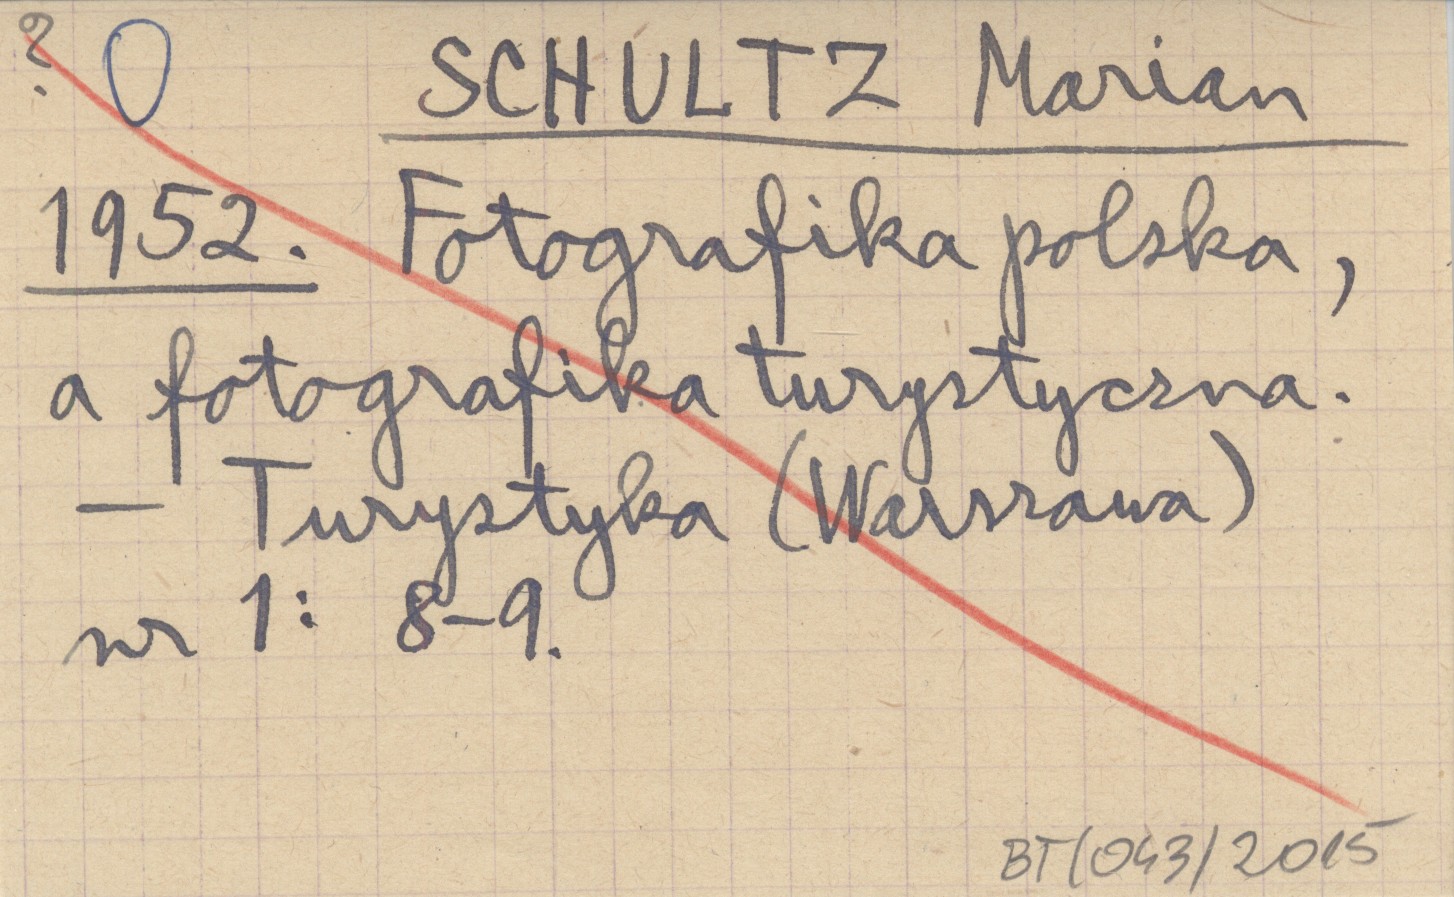 ? 0 SCHULTZ Marian
1952. Fotografika polska,
a fotografika turystyczna.
— Turystyka (Warszawa)
nr 1: 8-9.
BT/043/2015